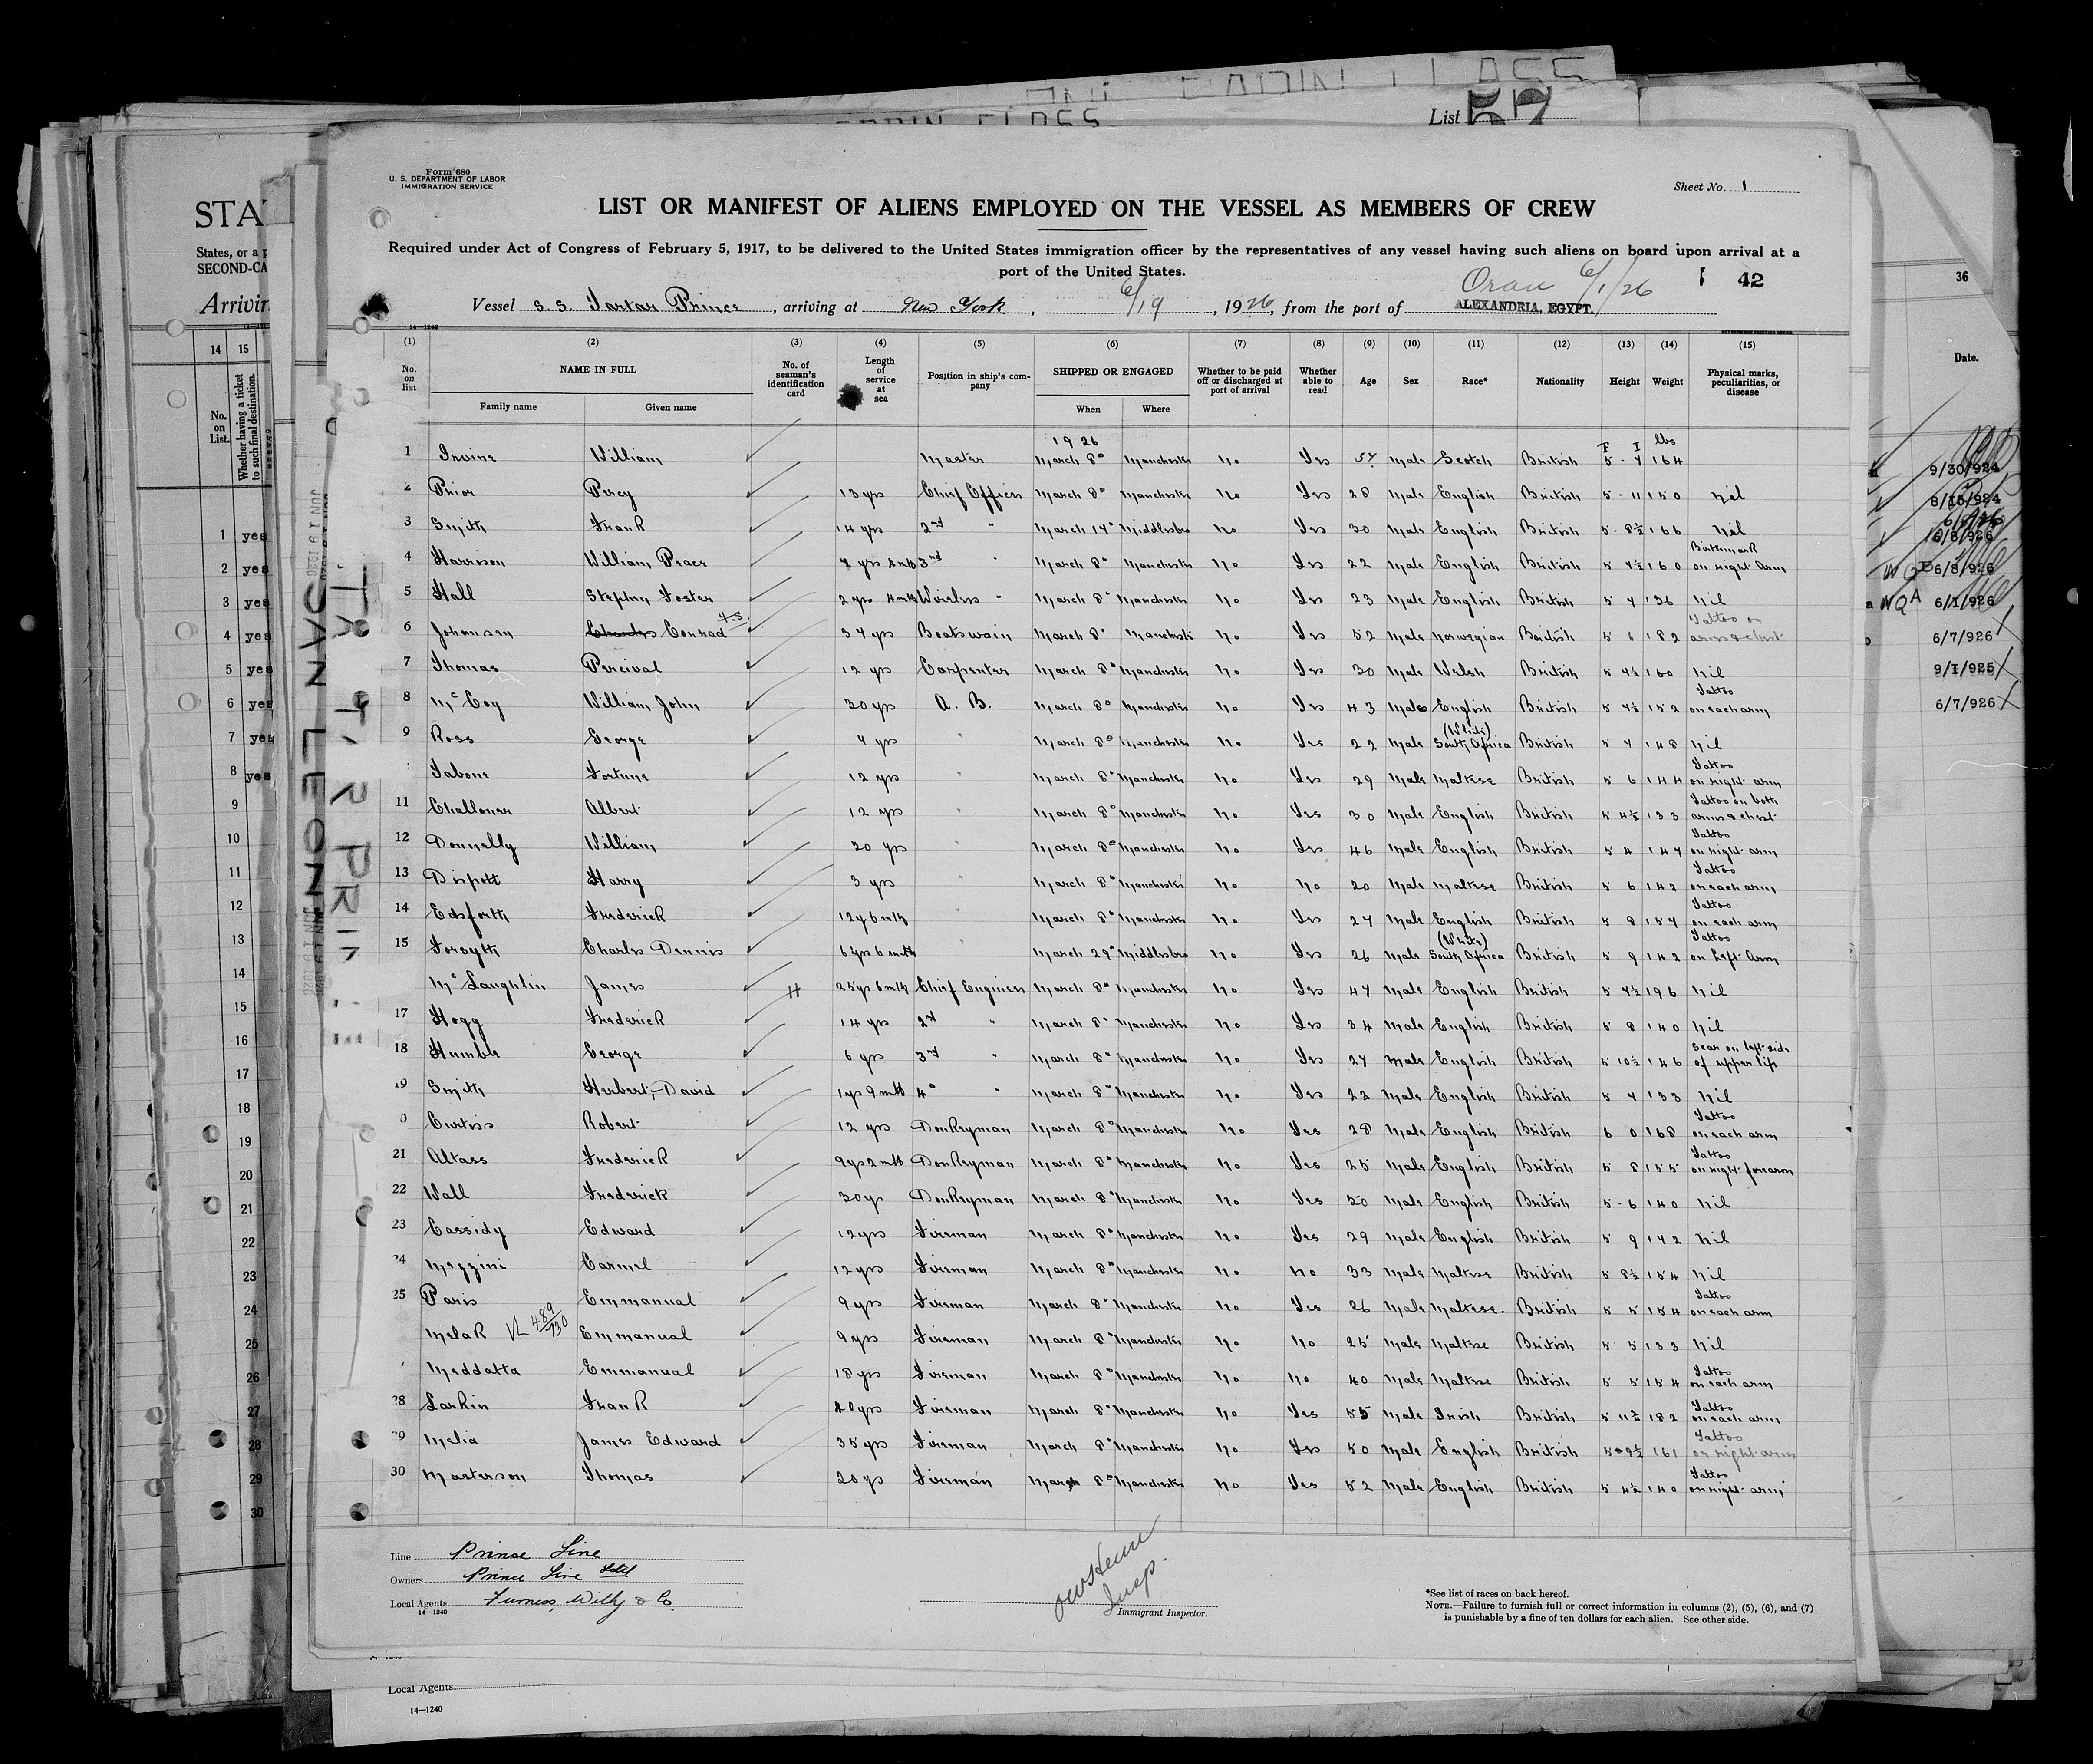 List 57
Form 680
U. S. DEPARTMENT OF LABOR
IMMIGRATION SERVICE
Sheet No. 1
LIST OR MANIFEST OF ALIENS EMPLOYED ON THE VESSEL AS MEMBERS OF CREW
Required under Act of Congress of February 5, 1917, to be delivered to the United States immigration officer by the representatives of any vessel having such aliens on board upon arrival at a
port of the United States.
Oran 6/1/26 42
Vessel S.S. Tartar Prince, arriving at New York, 6/19, 1926, from the port of ALEXANDRIA, EGYPT.
14-1240
(1) (2) (3) (4) (5) (6) (7) (8) (9) (10) (11) (12) (13) (14) (15)
No. on list NAME IN FULL Family name Given name No. of seaman's identification card Length of service at sea Position in ship's company SHIPPED OR ENGAGED When Where Whether to be paid off or discharged at port of arrival Whether able to read Age Sex Race* Nationality Height Weight Physical marks, peculiarities, or disease
1926 F I lbs
1 Irvine William Master March 8" Manchester No Yes 57 Male Scotch British 5-7 164
2 Prior Percy 13 yrs Chief Officer March 8" Manchester No Yes 28 Male English British 5-11 150 Nil
3 Smith Frank 14 yrs 2nd " March 14" Middlesbro No Yes 30 Male English British 5-8½ 166 Nil
4 Harrison William Peace 7 yrs 4 mth 3rd " March 8" Manchester No Yes 22 Male English British 5 7½ 160 Birthmark on right Arm
5 Hall Stephen Foster 2 yrs 4 mth Wireless " March 8" Manchester No Yes 23 Male English British 5 7 136 Nil
6 Johansen Charles Conrad 34 yrs Boatswain March 8" Manchester No Yes 52 Male Norwegian British 5 6 182 Tattoo on arms & chest
7 Thomas Percival 12 yrs Carpenter March 8" Manchester No Yes 30 Male Welsh British 5 7½ 160 Nil
8 McCoy William John 20 yrs A. B. March 8" Manchester No Yes 43 Male English British 5 7½ 152 Tattoo on each arm
9 Ross George 4 yrs " March 8" Manchester No Yes 22 Male (White) South Africa British 5 7 148 Nil
Tabone Fortune 12 yrs " March 8" Manchester No Yes 29 Male Maltese British 5 6 144 Tattoo on right arm
11 Challoner Albert 12 yrs " March 8" Manchester No Yes 30 Male English British 5 4½ 133 Tattoo on both arms & chest
12 Donnelly William 20 yrs " March 8" Manchester No Yes 46 Male English British 5 4 147 Tattoo on right arm
13 Dispott Harry 3 yrs " March 8" Manchester No No 20 Male Maltese British 5 6 142 Tattoo on each arm
14 Edsforth Frederick 12 y 6 mth March 8" Manchester No Yes 27 Male English British 5 8 157 Tattoo on each arm
15 Forsyth Charles Dennis 6 yrs 6 mth " March 29" Middlesbro No Yes 26 Male (White) South Africa British 5 9 142 Tattoo on Left Arm
McLaughlin James 25 yrs 6 mth Chief Engineer March 8" Manchester No Yes 47 Male English British 5 7½ 196 Nil
17 Hogg Frederick 14 yrs 2nd " March 8" Manchester No Yes 34 Male English British 5 8 140 Nil
18 Humble George 6 yrs 3rd " March 8" Manchester No Yes 27 Male English British 5 10½ 146 Scar on left side of upper lip
19 Smith Herbert, David 1 yr 9 mth 4" " March 8" Manchester No Yes 22 Male English British 5 7 133 Nil
Curtiss Robert 12 yrs Donkeyman March 8" Manchester No Yes 28 Male English British 6 0 168 Tattoo on each arm
21 Altass Frederick 9 yrs 2 mth Donkeyman March 8" Manchester No Yes 25 Male English British 5 8 155 Tattoo on right forearm
22 Wall Frederick 30 yr Donkeyman March 8" Manchester No Yes 50 Male English British 5-6 140 Nil
23 Cassidy Edward 12 yrs Fireman March 8" Manchester No Yes 29 Male English British 5 9 142 Nil
24 Mezzini Carmel 12 yrs Fireman March 8" Manchester No No 33 Male Maltese British 5 8½ 154 Nil
25 Paris Emmanual 9 yrs Fireman March 8" Manchester No Yes 26 Male Maltese. British 5 5 154 Tattoo on each arm
Melak VL 489/730 Emmanual 9 yrs Fireman March 8" Manchester No No 25 Male Maltese British 5 5 133 Nil
Meddatta Emmanual 18 yrs Fireman March 8" Manchester No No 40 Male Maltese British 5 5 154 Tattoo on each arm
28 Larkin Frank 40 yrs Fireman March 8" Manchester No Yes 55 Male Irish British 5 11½ 182 Tattoo on each arm
29 Melia James Edward 35 yrs Fireman March 8" Manchester No Yes 50 Male English British 5 9½ 161 Tattoo on right arm
30 Masterson Thomas 20 ys Fireman March 8" Manchester No Yes 52 Male English British 5 4½ 140 Tattoo on right arm
Line Prince Line
Owners Prince Line Ltd
Local Agents Furness, Withy & Co.
14-1240
Insp.
Immigrant Inspector.
*See list of races on back hereof.
NOTE.—Failure to furnish full or correct information in columns (2), (5), (6), and (7)
is punishable by a fine of ten dollars for each alien. See other side.
Local Agents
14-1240
STA
States, or a p
SECOND-CA
Arrivin
14 15
No. on List.
Whether having a ticket to such final destination.
1 yes
2 yes
3 yes
4 yes
5 yes
6 yes
7 yes
8 yes
9
10
11
12
13
14
15
16
17
18
19
20
21
22
23
24
25
26
27
28
29
30
SAN LEON
JUN 19 1926
TAR PRIN
36
Date.
9/30/924
8/15/924
6/8/926
6/8/926
6/1/926
6/7/926
9/1/925
6/7/926